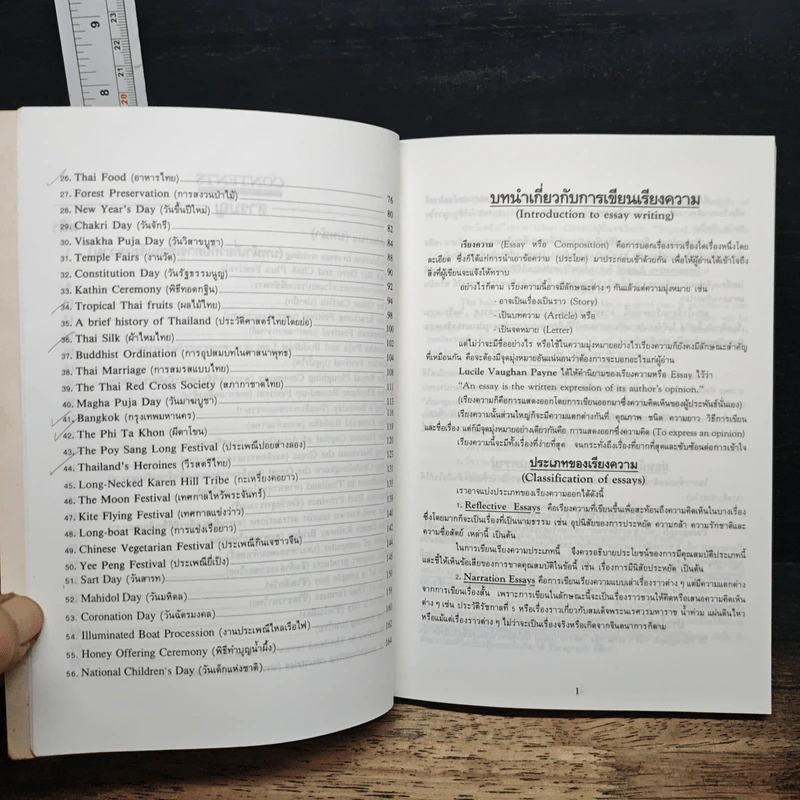 9
8
23
22
21
20
26. Thai Food (อาหารไทย)
27. Forest Preservation (การสงวนป่าไม้) 76
28. New Year's Day (วันขึ้นปีใหม่) 80
29. Chakri Day (วันจักรี) 82
30. Visakha Puja Day (วันวิสาขบูชา) 84
31. Temple Fairs (งานวัด) 86
32. Constitution Day (วันรัฐธรรมนูญ) 88
33. Kathin Ceremony (พิธีทอดกฐิน) 90
34. Tropical Thai fruits (ผลไม้ไทย) 92
35. A brief history of Thailand (ประวัติศาสตร์ไทยโดยย่อ) 94
36. Thai Silk (ผ้าไหมไทย) 100
37. Buddhist Ordination (การอุปสมบทในศาสนาพุทธ) 102
38. Thai Marriage (การสมรสแบบไทย)
39. The Thai Red Cross Society (สภากาชาดไทย)
40. Magha Puja Day (วันมาฆบูชา) 111
41. Bangkok (กรุงเทพมหานคร)
42. The Phi Ta Khon (ผีตาโขน) 116
43. The Poy Sang Long Festival (ประเพณีปอยส่างลอง)
44. Thailand's Heroines (วีรสตรีไทย)
45. Long-Necked Karen Hill Tribe (กะเหรี่ยงคอยาว)
46. The Moon Festival (เทศกาลไหว้พระจันทร์)
47. Kite Flying Festival (เทศกาลแข่งว่าว)
48. Long-boat Racing (การแข่งเรือยาว)
49. Chinese Vegetarian Festival (ประเพณีกินเจชาวจีน)
50. Yee Peng Festival (ประเพณียี่เป็ง)
51. Sart Day (วันสารท)
52. Mahidol Day (วันมหิดล)
53. Coronation Day (วันฉัตรมงคล)
54. Illuminated Boat Procession (งานประเพณีไหลเรือไฟ)
55. Honey Offering Ceremony (พิธีทำบุญน้ำผึ้ง) 162
56. National Children's Day (วันเด็กแห่งชาติ) 164
บทนำเกี่ยวกับการเขียนเรียงความ
(Introduction to essay writing)
เรียงความ (Essay หรือ Composition) คือการบอกเรื่องราวเรื่องใดเรื่องหนึ่งโดย
ละเอียด ซึ่งก็ได้แก่การนำเอาข้อความ (ประโยค) มาประกอบเข้าด้วยกัน เพื่อให้ผู้อ่านได้เข้าใจถึง
สิ่งที่ผู้เขียนจะแจ้งให้ทราบ
อย่างไรก็ตาม เรียงความนี้อาจมีลักษณะต่าง ๆ กันแล้วแต่ความมุ่งหมาย เช่น
- อาจเป็นเรื่องราว (Story)
- เป็นบทความ (Article) หรือ
- เป็นจดหมาย (Letter)
แต่ไม่ว่าจะมีชื่ออย่างไร หรือใช้ในความมุ่งหมายอย่างไรเรียงความก็ยังคงมีลักษณะสำคัญ
ที่เหมือนกัน คือจะต้องมีจุดมุ่งหมายอันแน่นอนว่าต้องการจะบอกอะไรแก่ผู้อ่าน
Lucile Vaughan Payne ได้ให้คำนิยามของเรียงความหรือ Essay ไว้ว่า
"An essay is the written expression of its author's opinion."
(เรียงความก็คือการแสดงออกโดยการเขียนออกมาซึ่งความคิดเห็นของผู้ประพันธ์นั่นเอง)
เรียงความนั้นส่วนใหญ่ก็จะมีความแตกต่างกันที่ คุณภาพ ชนิด ความยาว วิธีการเขียน
และชื่อเรื่อง แต่ก็มีจุดมุ่งหมายอย่างเดียวกันคือ การแสดงออกซึ่งความคิด (To express an opinion)
เรียงความนี้จะมีทั้งเรื่องที่ง่ายที่สุด จนกระทั่งถึงเรื่องที่ยากที่สุดและซับซ้อนต่อการเข้าใจ
ประเภทของเรียงความ
(Classification of essays)
เราอาจแบ่งประเภทของเรียงความออกได้ดังนี้
1. Reflective Essays คือเรียงความที่เขียนขึ้นเพื่อสะท้อนถึงความคิดเห็นในบางเรื่อง
ซึ่งโดยมากก็จะเป็นเรื่องที่เป็นนามธรรม เช่น อุปนิสัยของการประหยัด ความกล้า ความรักชาติและ
ความซื่อสัตย์ เหล่านี้ เป็นต้น
ในการเขียนเรียงความประเภทนี้ จึงควรอธิบายประโยชน์ของการมีคุณสมบัติประเภทนี้
และชี้ให้เห็นข้อเสียของการขาดคุณสมบัติในข้อนี้ เช่น เรื่องการมีนิสัยประหยัด เป็นต้น
2. Narration Essays คือการเขียนเรียงความแบบเล่าเรื่องราวต่าง ๆ แต่มีความแตกต่าง
จากการเขียนเรื่องสั้น เพราะการเขียนในลักษณะนี้จะเป็นเรื่องราวชวนให้คิดหรือเสนอความคิดเห็น
ต่าง ๆ เช่น ประวัติรัชกาลที่ 5 หรือเรื่องราวเกี่ยวกับสมเด็จพระนเรศวรมหาราช น้ำท่วม แผ่นดินไหว
หรือแม้แต่เรื่องราวต่าง ๆ ไม่ว่าจะเป็นเรื่องจริงหรือเกิดจากจินตนาการก็ตาม
1